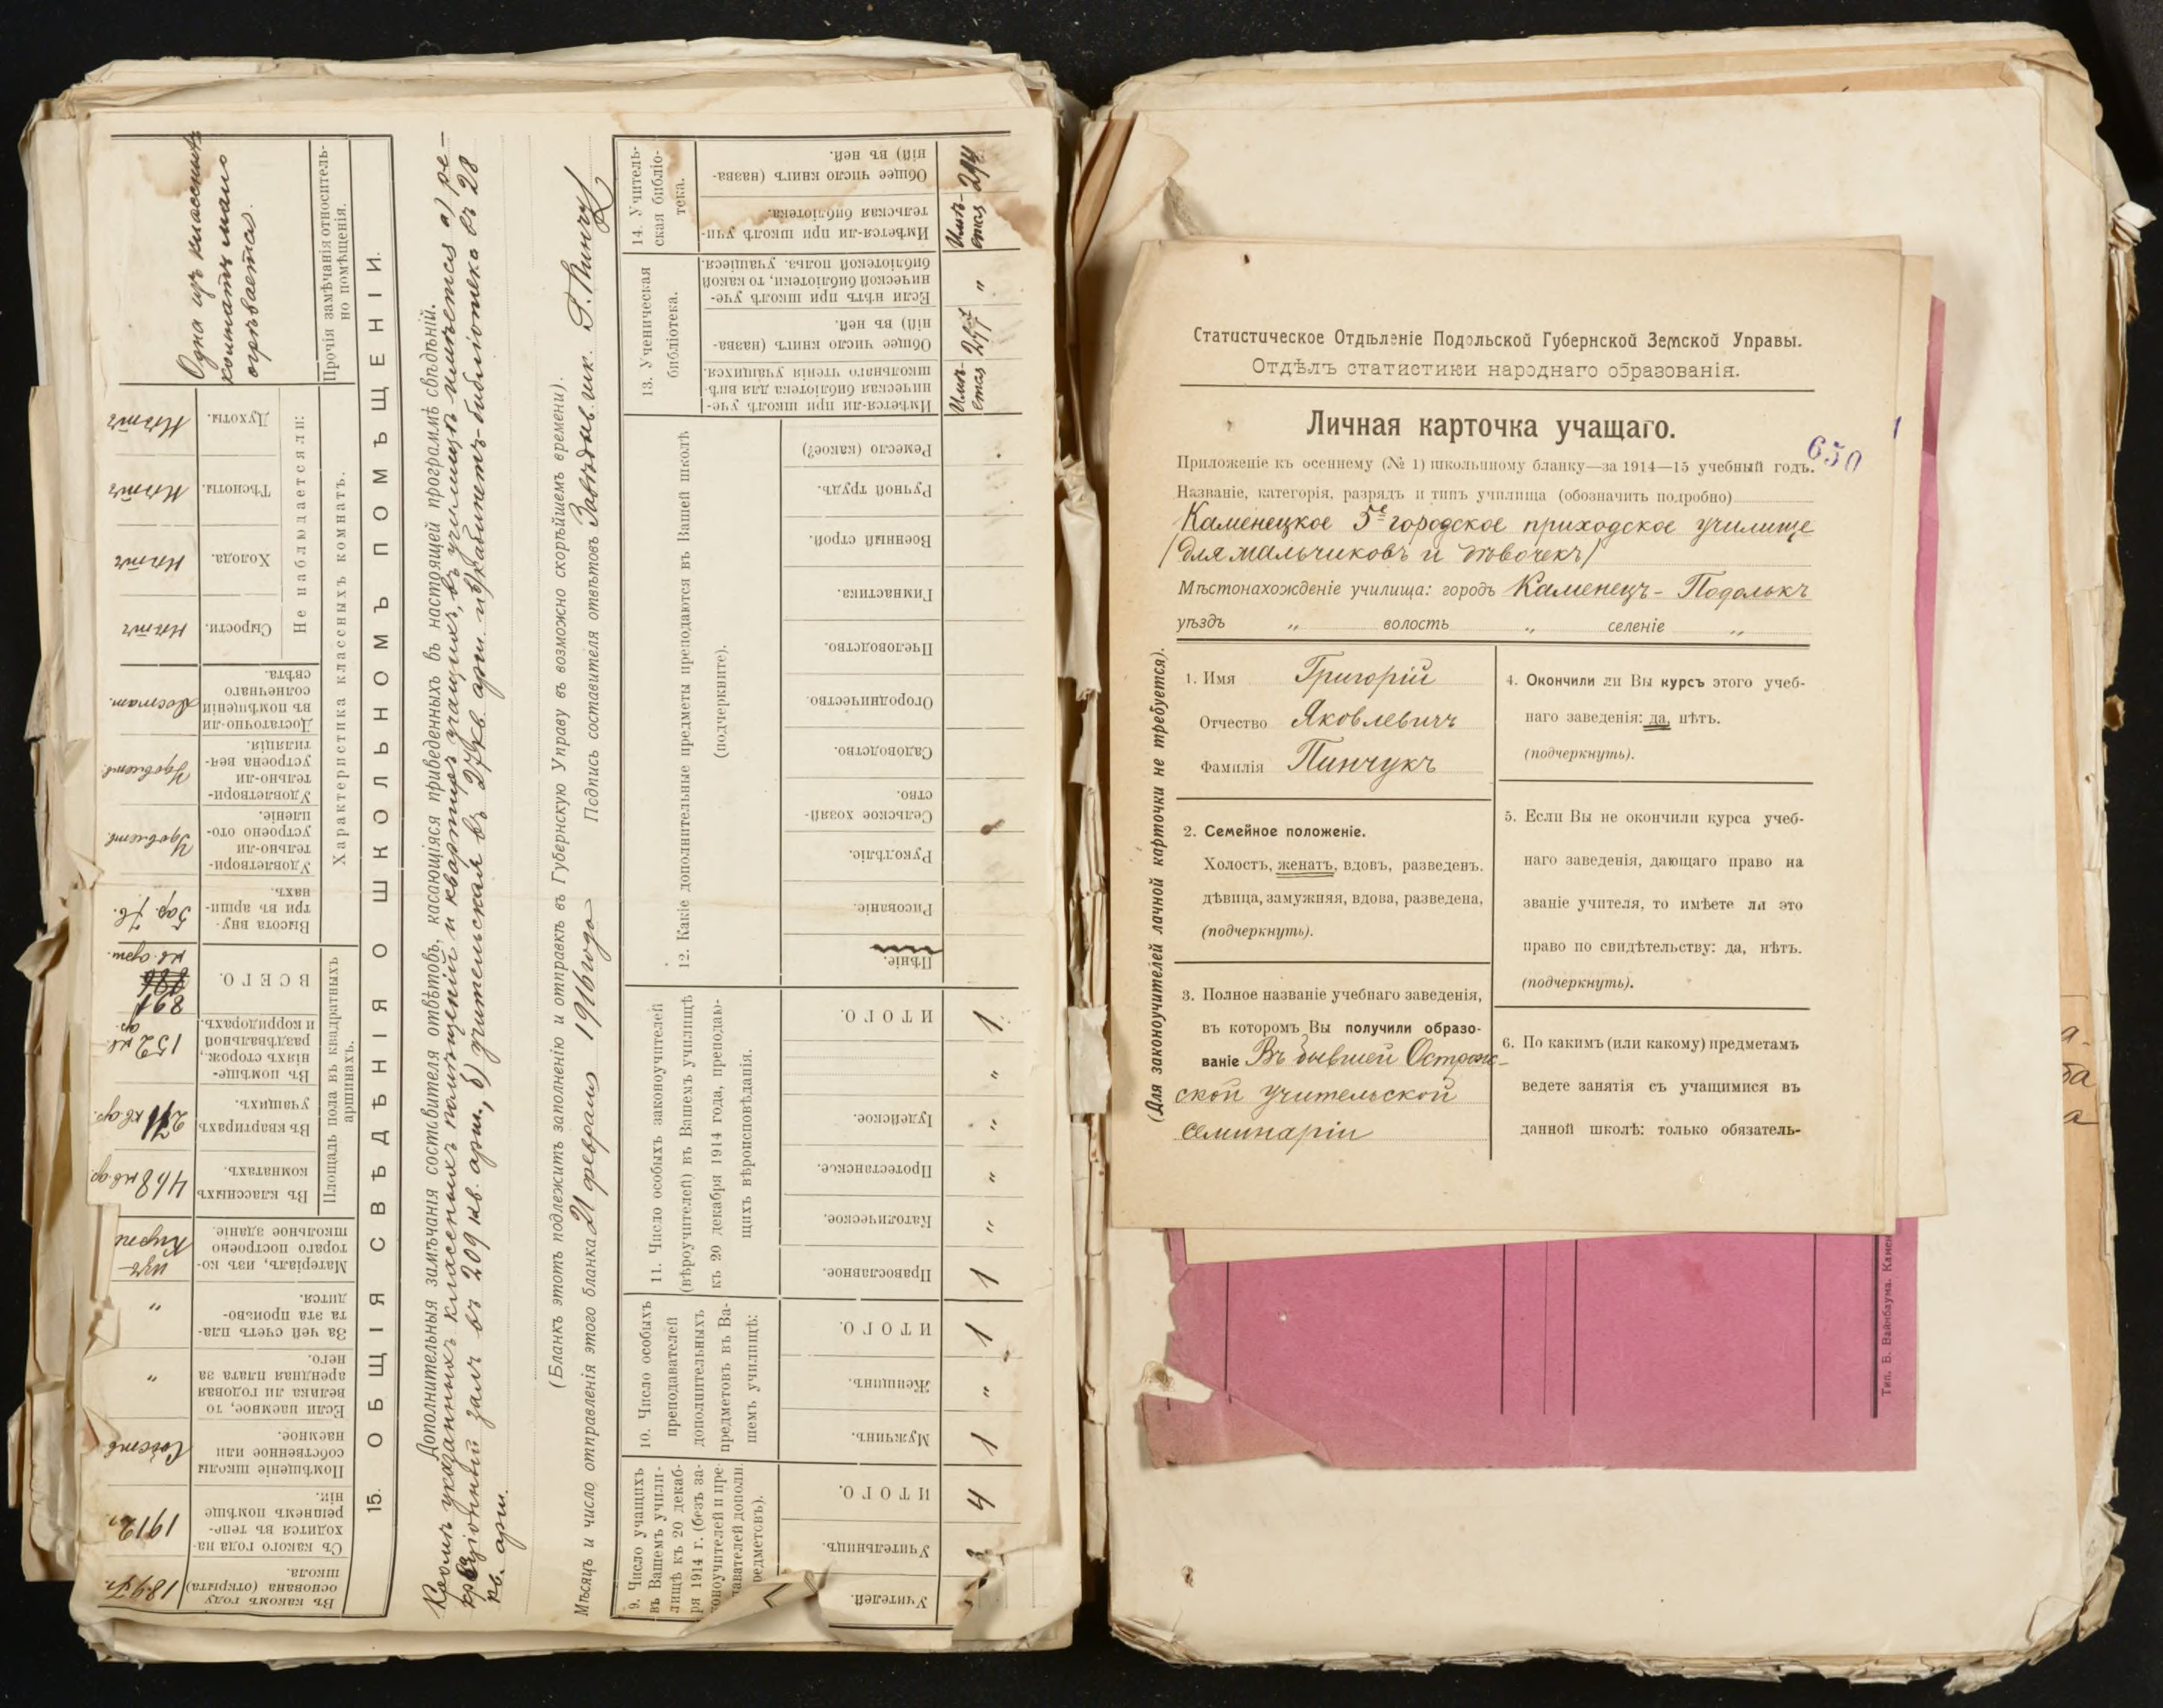 15. ОБЩІЯ СВѢДѢНІЯ О ШКОЛЬНОМЪ ПОМѢЩЕНІИ.
Въ какомъ году
основана (открыта)
школа.
1897г.
Съ какого года на-
ходится въ тепе-
решнемъ помѣще
ніи.
1912г.
Помѣщеніе школы
собственное или
наемное.
Собств
Если наемное, то
велика ли годовая
арендная плата за
него.
"
За чей счетъ пла-
та эта произво-
дится.
"
Матеріалъ, изъ ко-
тораго построено
школьное зданіе.
изъ
Площадь пола въ квадратныхъ
аршинахъ.
Въ классныхъ
комнатахъ.
468 кв.ар.
Въ квартирахъ
учащихъ.
271 кв.ар.
Въ помѣще-
ніяхъ сторож.,
раздѣвальной
и корридорахъ.
152 кв.
ар.
ВСЕГО.
891
кв. арш.
Характеристика классныхъ комнатъ.
Высота вну-
три въ арши-
нахъ.
5ар. 7в.
Удовлетвори-
тельно-ли
устроено ото-
пленіе.
Удовлет.
Удовлетвори-
тельно-ли
устроена вен-
тиляція.
Удовлет.
Достаточно-ли
въ помѣщеніи
солнечнаго
свѣта.
Достат.
Не наблюдается ли:
Сырости.
Нѣтъ
Холода.
Нѣтъ
Тѣсноты.
Нѣтъ
Духоты.
Нѣтъ
Прочія замѣчанія относитель-
но помѣщенія.
Одна изъ классныхъ
комнатъ мало
огрѣвается.
Дополнительныя замѣчанія составителя отвѣтовъ, касающіяся приведенныхъ въ настоящей программѣ свѣдѣній.
Кромѣ указанныхъ классныхъ помѣщеній и квартиръ учащихъ, въ училищѣ имѣется а) ре-
креаціонный залъ въ 209 кв. арш., б) учительская въ 27 кв. арш. и в) кабинетъ-библіотека въ 28
кв. арш.
(Бланкъ этотъ подлежитъ заполненію и отправкѣ въ Губернскую Управу въ возможно скорѣйшемъ времени).
Мѣсяцъ и число отправленія этого бланка 21 февраля 1916 года Подпись составителя отвѣтовъ Завѣдыв. шк. Г. Пинчук
9. Число учащихъ
въ Вашемъ учили-
лищѣ къ 20 декаб-
ря 1914 г. (безъ за-
коноучителей и пре-
давателей дополн.
редметовъ).
Учителей.
Учительницъ.
3
ИТОГО.
4
10. Число особыхъ
преподавателей
дополнительныхъ
предметовъ въ Ва-
шемъ училищѣ:
Мужчинъ.
1
Женщинъ.
"
ИТОГО.
1
11. Число особыхъ законоучителей
(вѣроучителей) въ Вашемъ училищѣ
къ 20 декабря 1914 года, преподаю-
щихъ вѣроисповѣданія.
Православное.
1
Католическое.
"
Протестанское.
"
Іудейское.
"
"
ИТОГО.
1
12. Какіе дополнительные предметы преподаются въ Вашей школѣ
(подчеркните).
Пѣніе.
Рисованіе.
Рукодѣліе.
Сельское хозяй-
ство.
Садоводство.
Огородничество.
Пчеловодство.
Гимнастика.
Военный строй.
Ручной трудъ.
Ремесло (какое?)
13. Ученическая
библіотека.
Имѣется-ли при школѣ уче-
ническая библіотека для внѣ-
школьнаго чтенія учащихся.
Имѣ-
ется
Общее число книгъ (назва-
ній) въ ней.
Если нѣтъ при школѣ уче-
нической библіотеки, то какой
библіотекой польз. учащіеся.
"
14. Учитель-
ская библіо-
тека.
Имѣется-ли при школѣ учи-
тельская библіотека.
Имѣ-
ется
Общее число книгъ (назва-
ній) въ ней.
294
Статистическое Отдѣленіе Подольской Губернской Земской Управы.
Отдѣлъ статистики народнаго образованія.
Личная карточка учащаго.
650
Приложеніе къ осеннему (№ 1) школьному бланку—за 1914—15 учебный годъ.
Названіе, категорія, разрядъ и типъ училища (обозначить подробно)
Каменецкое 5е городское приходское училище
(для мальчиковъ и дѣвочекъ)
Мѣстонахожденіе училища: городъ Каменецъ-Подольскъ
уѣздъ " волость " селеніе "
(Для законоучителей личной карточки не требуется).
1. Имя Григорій
Отчество Яковлевичъ
Фамилія Пинчукъ
2. Семейное положеніе.
Холостъ, женатъ, вдовъ, разведенъ.
дѣвица, замужняя, вдова, разведена,
(подчеркнуть).
3. Полное названіе учебнаго заведенія,
въ которомъ Вы получили образо-
ваніе Въ бывшей Острож-
ской учительской
семинаріи
4. Окончили ли Вы курсъ этого учеб-
наго заведенія: да, нѣтъ.
(подчеркнуть).
5. Если Вы не окончили курса учеб-
наго заведенія, дающаго право на
званіе учителя, то имѣете ли это
право по свидѣтельству: да, нѣтъ.
(подчеркнуть).
6. По какимъ (или какому) предметамъ
ведете занятія съ учащимися въ
данной школѣ: только обязатель-
Тип. Б. Вайнбаума. Камен